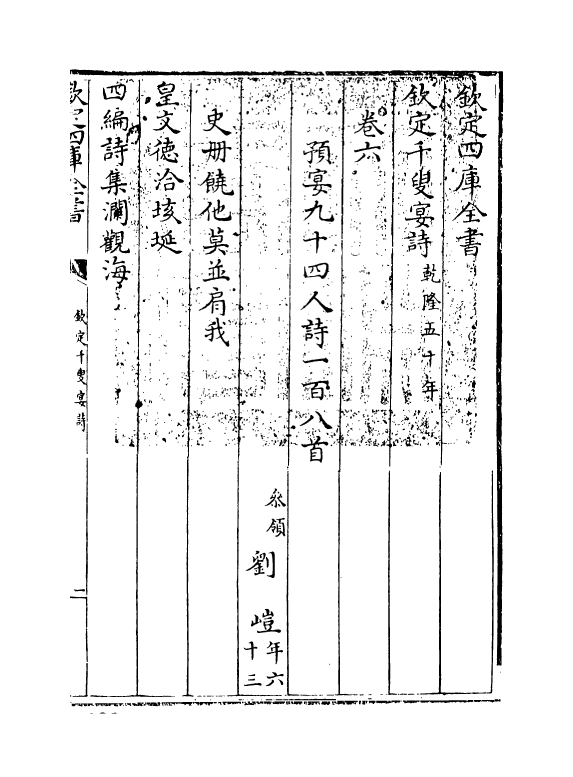 欽定四庫全書
欽定千叟宴詩 乾隆五十年
卷六
預宴九十四人詩一百八首
叅領 劉 嵦 年六十三
史册饒他莫並肩我
皇文徳洽垓埏
四編詩集瀾觀海
欽定四庫全書
欽定千叟宴詩